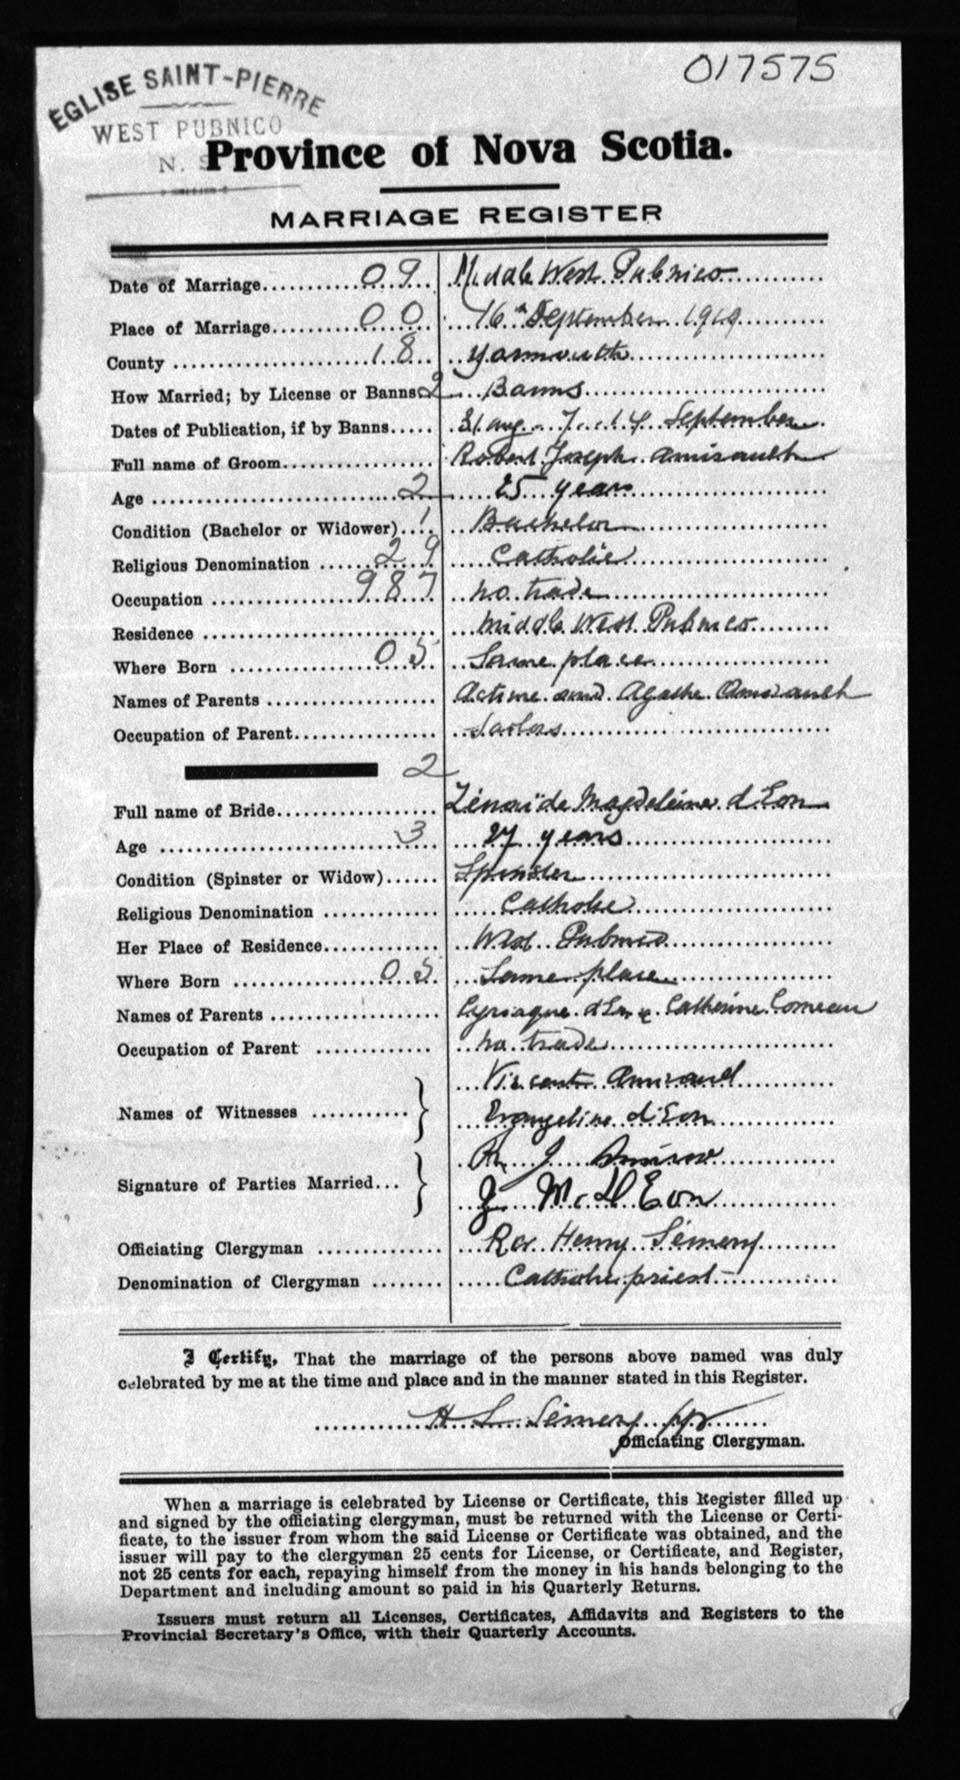 017575
EGLISE SAINT-PIERRE
WEST PUBNICO
N. S.
Province of Nova Scotia.
MARRIAGE REGISTER
Date of Marriage............09.. Middle West Pubnico
Place of Marriage............00.. 16th September 1919
County ............18.. Yarmouth
How Married; by License or Banns 2 Banns
Dates of Publication, if by Banns..... 31 aug. 7. 14 September
Full name of Groom................. Robert Joseph Amirault
Age ............2 25 years
Condition (Bachelor or Widower) 1 Bachelor
Religious Denomination ......29 Catholic
Occupation ............987 no trade
Residence ............ Middle West Pubnico
Where Born ............05.. Same place
Names of Parents ............ and Agathe Amirault
Occupation of Parent............ Sailors
2
Full name of Bride............ Zénaïde Magdeleine d'Eon
Age ............3 27 years
Condition (Spinster or Widow)...... Spinster
Religious Denomination ............ Catholic
Her Place of Residence............ West Pubnico
Where Born ............05.. Same place
Names of Parents ............ Cyriaque d'Eon & Catherine Comeau
Occupation of Parent ............ no trade
Vincent Amirault
Names of Witnesses ............
Evangeline d'Eon
R. J. Amiro
Signature of Parties Married...
Z. M. D'Eon
Officiating Clergyman ............ Rev Henry Sémery
Denomination of Clergyman ........ Catholic priest
I Certify, That the marriage of the persons above named was duly
celebrated by me at the time and place and in the manner stated in this Register.
H L Sémery ppr
Officiating Clergyman.
When a marriage is celebrated by License or Certificate, this Register filled up
and signed by the officiating clergyman, must be returned with the License or Certi-
ficate, to the issuer from whom the said License or Certificate was obtained, and the
issuer will pay to the clergyman 25 cents for License, or Certificate, and Register,
not 25 cents for each, repaying himself from the money in his hands belonging to the
Department and including amount so paid in his Quarterly Returns.
Issuers must return all Licenses, Certificates, Affidavits and Registers to the
Provincial Secretary's Office, with their Quarterly Accounts.